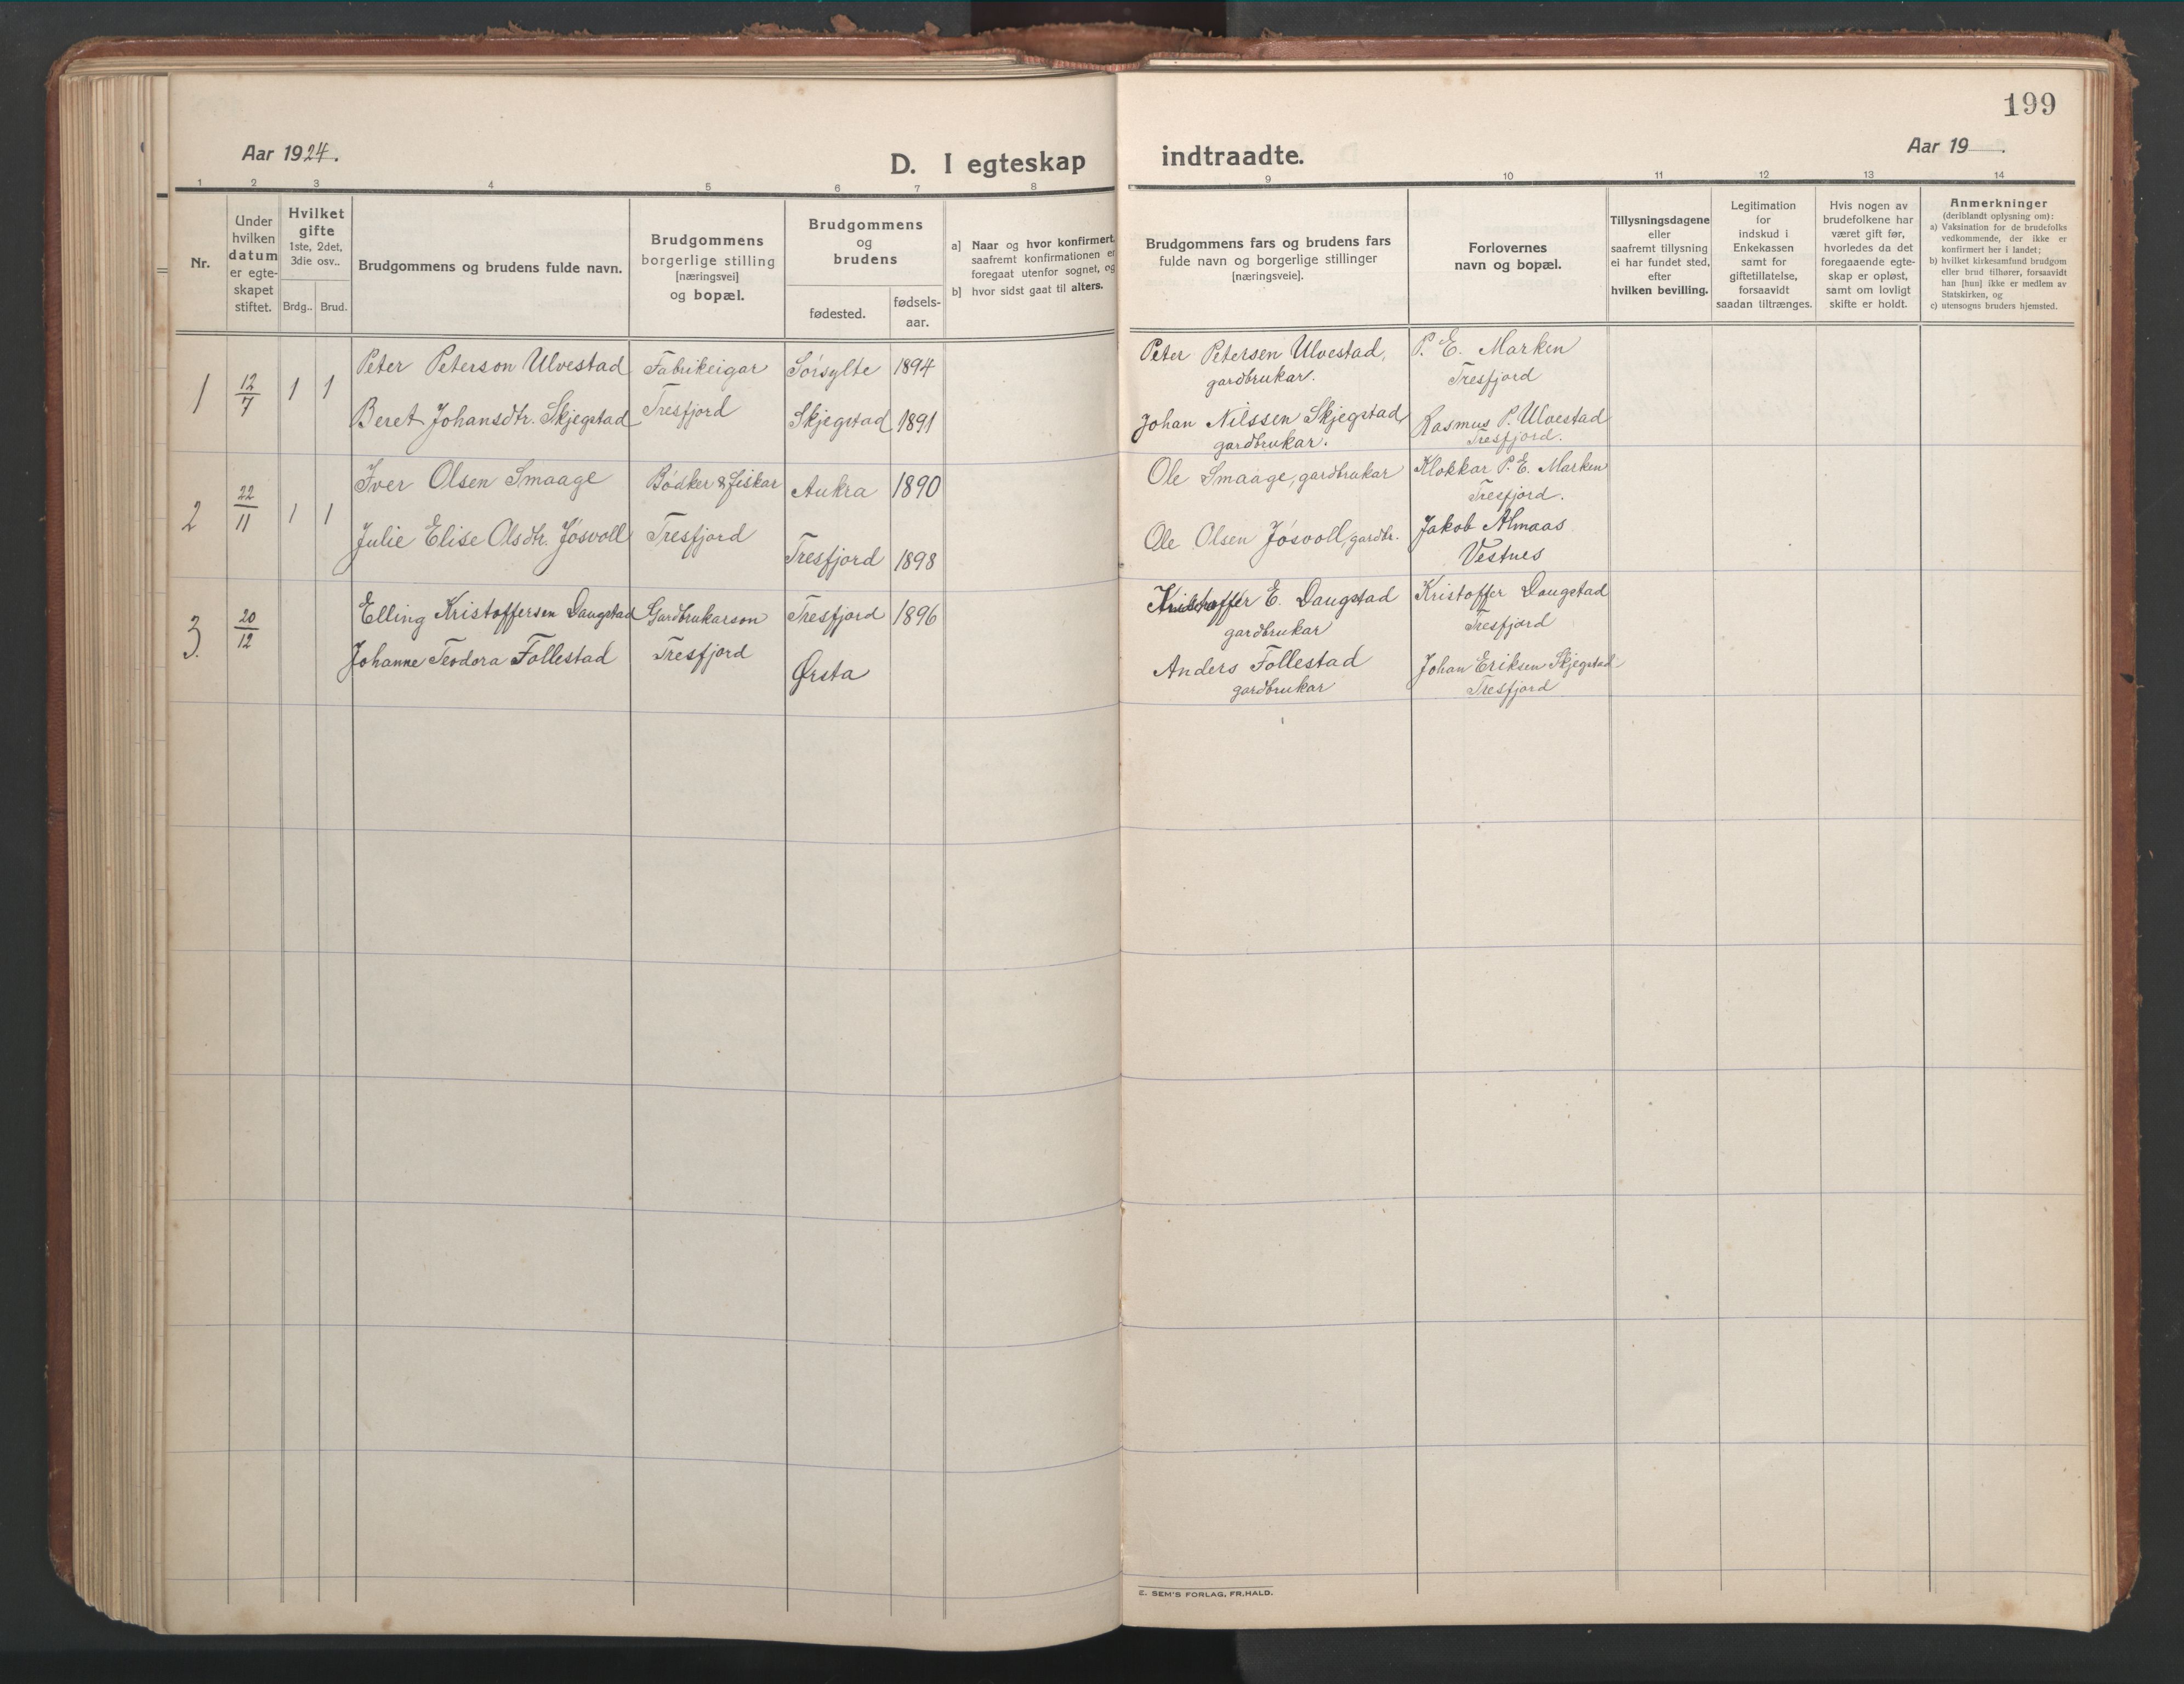 199
Aar 1924.
D. I egteskap indtraadte.
Aar 19 .
1 2 3 4 5 6 7 8 9 10 11 12 13 14
Nr.
Under hvilken datum er egte-skapet stiftet.
Hvilket gifte
1ste, 2det, 3die osv..
Brdg.. Brud.
Brudgommens og brudens fulde navn.
Brudgommens
borgerlige stilling
[næringsvei]
og bopæl.
Brudgommens
og
brudens
fødested.
fødsels-
aar.
a] Naar og hvor konfirmert,
saafremt konfirmationen er
foregaat utenfor sognet, og
b] hvor sidst gaat til alters.
Brudgommens fars og brudens fars
fulde navn og borgerlige stillinger
[næringsveie].
Forlovernes
navn og bopæl.
Tillysningsdagene
eller
saafremt tillysning
ei har fundet sted,
efter
hvilken bevilling.
Legitimation
for
indskud i
Enkekassen
samt for
giftetillatelse,
forsaavidt
saadan tiltrænges.
Hvis nogen av
brudefolkene har
været gift før,
hvorledes da det
foregaaende egte-
skap er opløst,
samt om lovligt
skifte er holdt.
Anmerkninger
(deriblandt oplysning om):
a) Vaksination for de brudefolks
vedkommende, der ikke er
konfirmert her i landet;
b) hvilket kirkesamfund brudgom
eller brud tilhører, forsaavidt
han [hun] ikke er medlem av
Statskirken, og
c) utensogns bruders hjemsted.
1 12/7 1 1
Peter Peterson Ulvestad Fabrikeigar Sørsylte 1894
Beret Johansdtr. Skjegstad Tresfjord Skjegstad 1891
Peter Petersen Ulvestad,
gardbrukar.
Johan Nilssen Skjegstad
gardbrukar.
P. E. Marken
Tresfjord
Rasmus P. Ulvestad
Tresfjord.
2 22/11 1 1
Iver Olsen Smaage Bødker & fiskar Aukra 1890
Julie Elise Olsdtr. Jøsvoll Tresfjord Tresfjord 1898
Ole Smaage, gardbrukar
Ole Olsen Jøsvoll, gardbr.
Klokkar P. E. Marken
Tresfjord.
Jakob Almaas
Vestnes
3. 20/12
Elling Kristoffersen Daugstad Gardbrukarson Tresfjord 1896
Johanne Teodora Follestad Tresfjord Ørsta
Kristoffer E. Daugstad
gardbrukar
Anders Follestad
gardbrukar
Kristoffer Daugstad
Tresfjord
Johan Eriksen Skjegstad
Tresfjord
E. SEM'S FORLAG, FR.HALD.